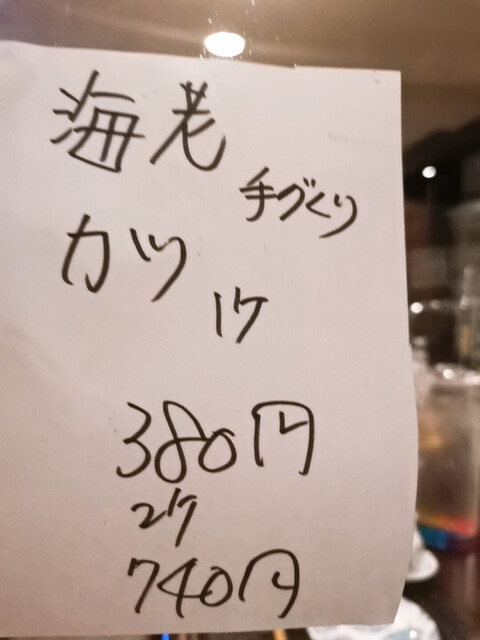 海老
手づくり
カツ
1ケ
380円
2ケ
740円